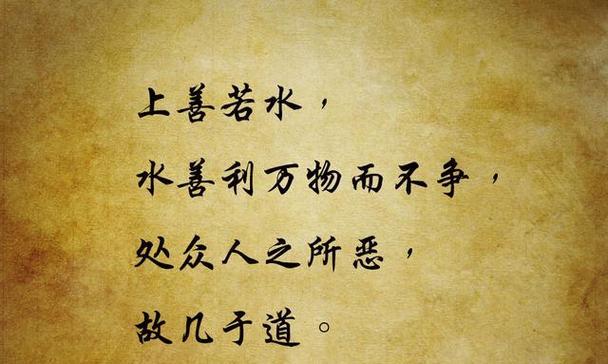 上善若水，
水善利万物而不争，
处众人之所恶，
故几于道。